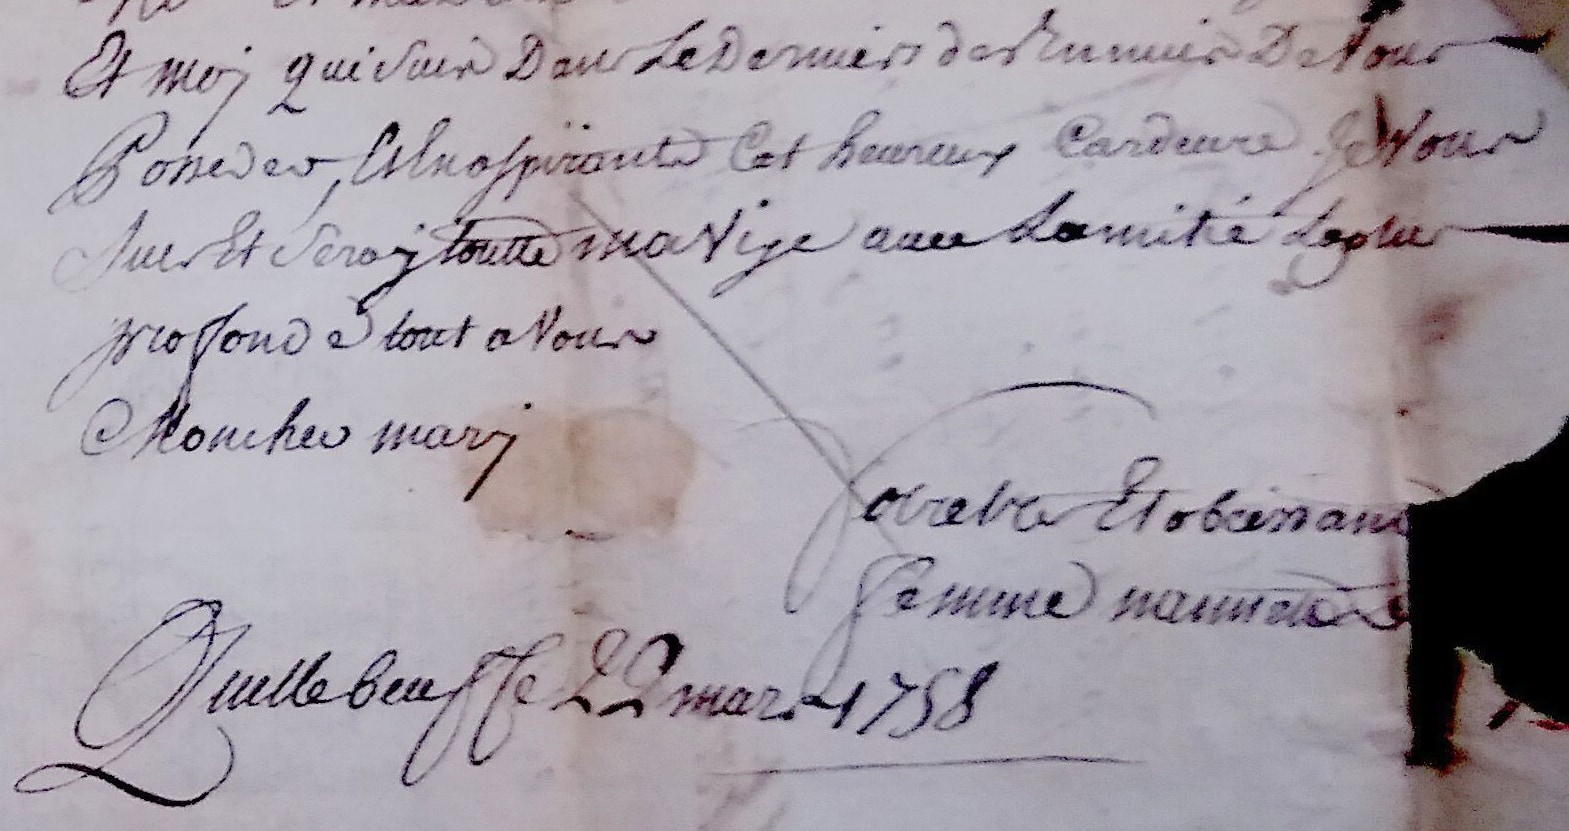 Et moy qui suis Dans Le Dernier des Ennuis De Vous
Posseder, Et En aspirante Cet heureux Cardeure Je Vous
suis Et seray toutte ma Vije avec Lamitié Leplus
profonde tout a Vous
Moncher mary
Votre Et obeissan
femme nannette
Quillebeuf le 22 mars 1758